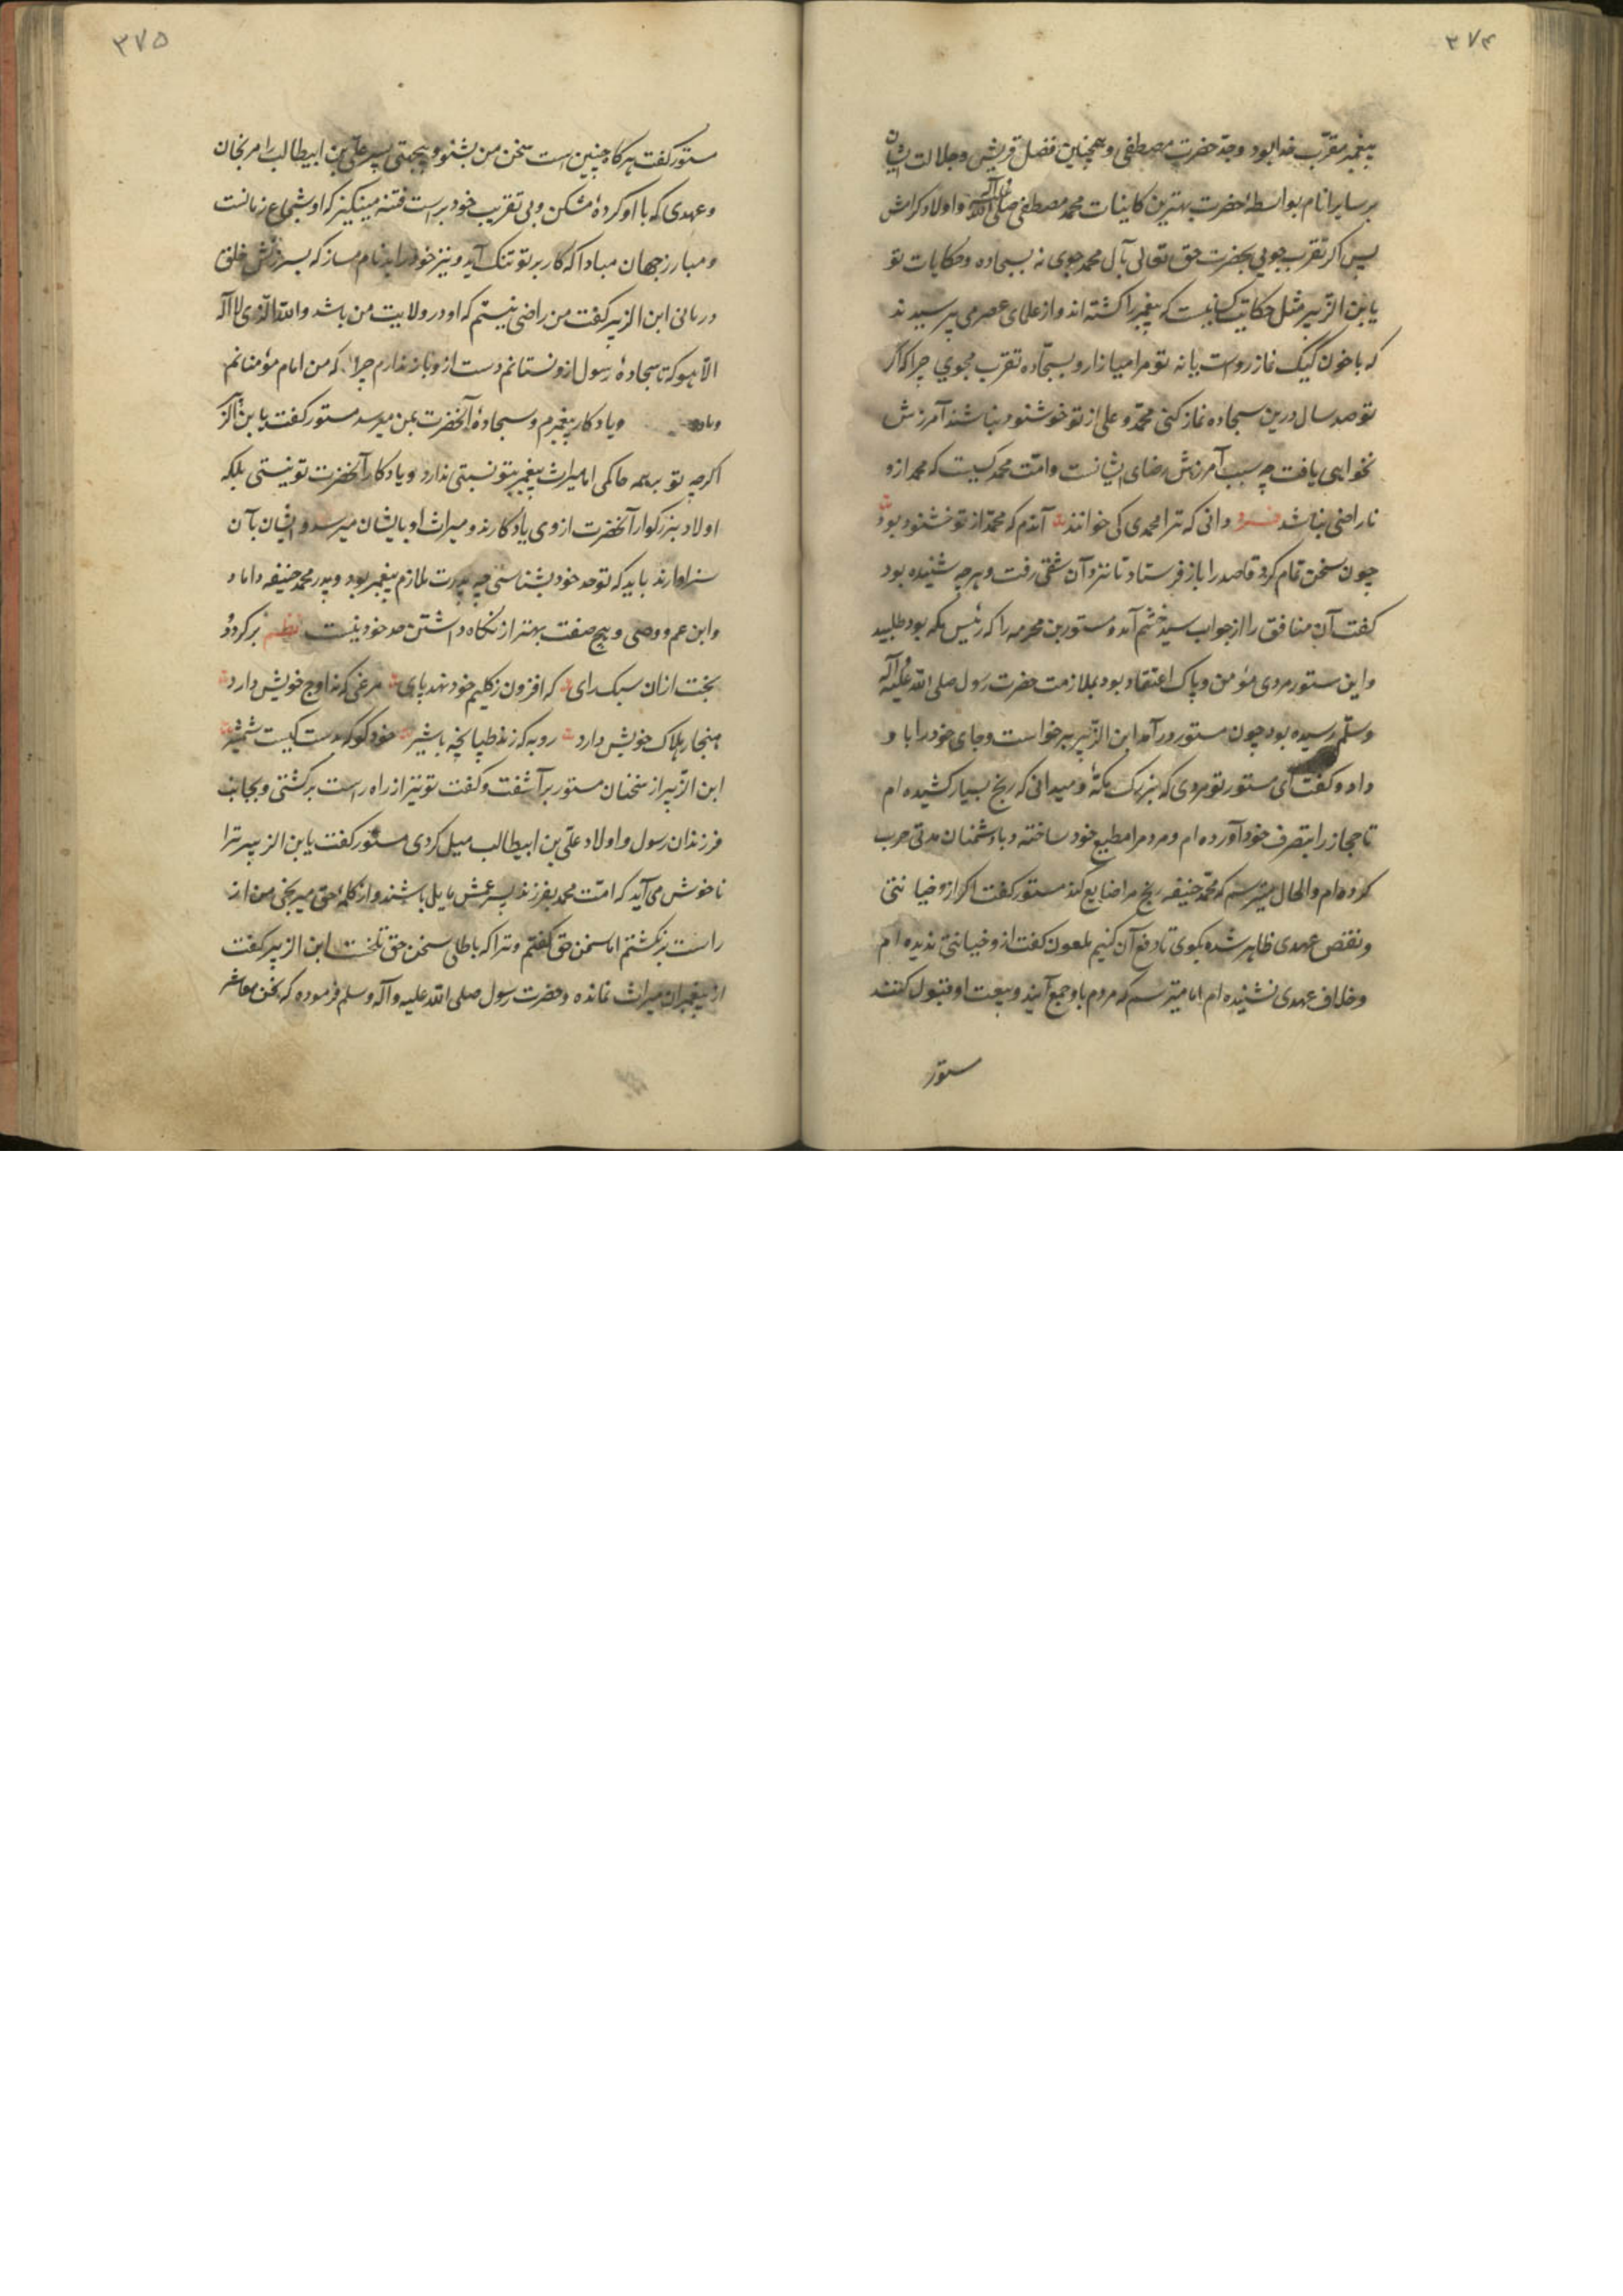 ۳۷۴
پیغمبر مقرّب خدا بود و جدّ حضرت مصطفی و همچنین فضل قریش و جلالت ایشان
بر سایر انام بواسطهٔ حضرت بهترین کاینات محمد مصطفی صلی الله علیه و آله و اولاد کرامش
پس اکر تقرب جویی بحضرت حق تعالی بآل محمد جوی نه بسجاده و حکایات تو
یا بن الزبیر مثل حکایت کسانیست که پیغمبر را کشته اند و از علمای عصر می پرسیدند
که با خون کیک نماز رواست یا نه تو مرا میازار و بسجّاده تقرب مجوی چرا که اکر
تو صد سال درین سجاده نماز کنی محمّد و علی از تو خوشنود نباشند آمرزش
نخواهی یافت چه سبب آمرزش رضای ایشانست و امّت محمد کسیست که محمد ازو
ناراضی نباشد فرد دانی که ترا محمدی کی خوانند آندم که محمّد از تو خشنود بود
چون سخن تمام کرد قاصد را باز فرستاد تا نزد آن شقی رفت و هرچه شنیده بود
کفت آن منافق را از جواب سید خشم آمد و مستور بن مخرمه را که رئیس مکه بود طلبید
و این مستور مردی مؤمن و پاک اعتقاد بود بملازمت حضرت رسول صلی الله علیه و آله
و سلّم رسیده بود چون مستور در آمد ابن الزّبیر برخواست و جای خود را با و
داد و کفت ای مستور تو مردی که بزرک مکّهٔ و میدانی که رنج بسیار کشیده ام
تا حجاز را بتصرف خود آورده ام و مردم را مطیع خود ساخته و با دشمنان مدتی حرب
کرده ام و الحال میترسم که محمّد حنیفه رنج مرا ضایع کند مستور کفت اکر ازو خیانتی
و نقض عهدی ظاهر شده بکوی تا دفع آن کنیم ملعون کفت ازو خیانتی ندیده ام
و خلاف عهدی نشنیده ام اما میترسم که مردم با و جمع آیند و بیعت او قبول کنند
مستور
۳۷۵
مستور کفت هرکاه چنین است سخن من بشنو و بیجهتی پسر علی بن ابیطالب را مرنجان
و عهدی که با او کردهٔ مشکن و بی تقریب خود بر است فتنه مینکیز که او شجاع زمانست
و مبارز جهان مبادا که کار بر تو تنک آید و نیز خود را بدنام مساز که بسرزنش خلق
در مانی ابن الزبیر کفت من راضی نیستم که او در ولایت من باشد و الله الذی لا اله
الّا هو که تا سجادهٔ رسول ازو نستانم دست ازو باز ندارم چرا که من امام مؤمنانم
و یادکار پیغمبرم و سجادهٔ آنحضرت بمن میرسد مستور کفت یا بن الزبیر
اکرچه تو بر همه حاکمی اما میراث پیغمبر بتو نسبتی ندارد و یادکار آنحضرت تو نیستی بلکه
اولاد بزرکوار آنحضرت از وی یادکارند و میراث او بایشان میرسد و ایشان بآن
سزاوارند باید که تو حد خود بشناسی چه پدرت ملازم پیغمبر بود و پدر محمد حنیفه داماد
و ابن عم و وصی و هیچ صفت بهتر از نکاه داشتن حد خود نیست نظم برکردد
بخت ازان سبک رای که افزون ز کلیم خود نهد پای مرغی که نه اوج خویش دارد
هنجار هلاک خویش دارد روبه که زند طپانچه با شیر خود کو که بدست کیست شمشیر
ابن الزّبیر از سخنان مستور برآشفت و کفت تو نیز از راه راست برکشتی و بجانب
فرزندان رسول و اولاد علّی بن ابیطالب میل کردی مستور کفت یا بن الزبیر ترا
ناخوش می آید که امّت محمد بفرزند پسر عمش مایل باشند و از کلمهٔ حق میرنجی من از
راست برنکشتم اما سخن حق کفتم و ترا که باطلی سخن حق تلخست ابن الزبیر کفت
از پیغمبران میراث نمانده و حضرت رسول صلی الله علیه و آله و سلم فرموده که نحن معاشر